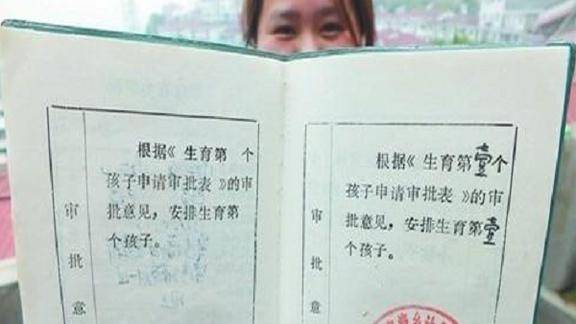 根据《生育第 个
孩子申请审批表》的审
批意见，安排生育第
个孩子。
审
批
意
根据《生育第壹个
孩子申请审批表》的审
批意见，安排生育第壹
个孩子。
审
批
意